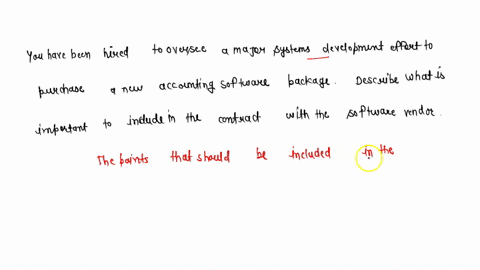 You have been hired to oversee a major systems development effort to
purchase a new accounting software package. Describe what is
important to include in the contract with the software vendor.
The points that should be included in the